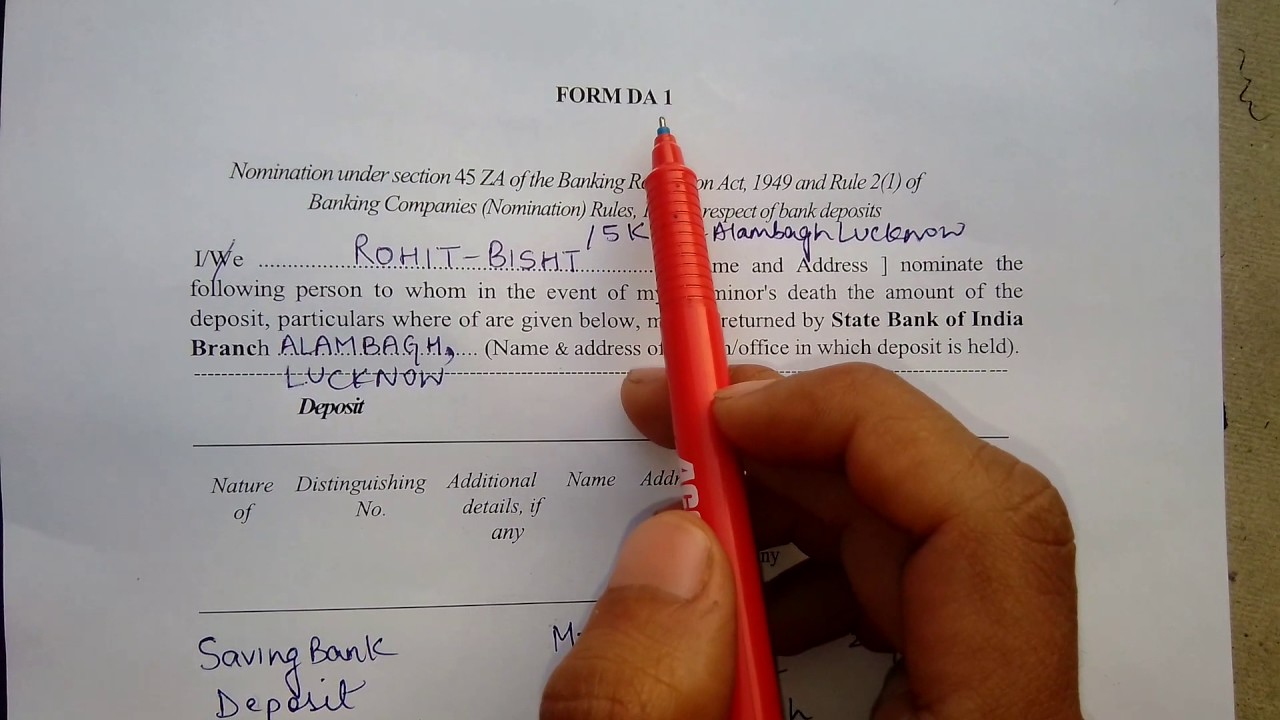 FORM DA 1
Nomination under section 45 ZA of the Banking on Act, 1949 and Rule 2(1) of
Banking Companies (Nomination) Rules, respect of bank deposits
/5K Alambagh Lucknow
I/We ROHIT-BISHT and Address ] nominate the
following person to whom in the event of minor's death the amount of the
deposit, particulars where of are given below, returned by State Bank of India
Branch ALAMBAGH, (Name & address of /office in which deposit is held).
LUCKNOW
Deposit
Nature Distinguishing Additional Name
of No. details, if
any
Saving Bank
Deposit